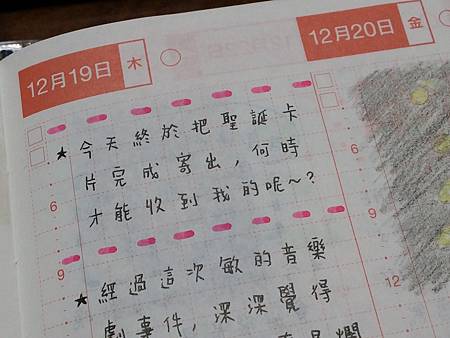 12月19日 木
12月20日 金
★今天終於把聖誕卡
片完成寄出,何時
才能收到我的呢~?
6
9
★經過這次敏的音樂
劇事件,深深覺得
6
9
12